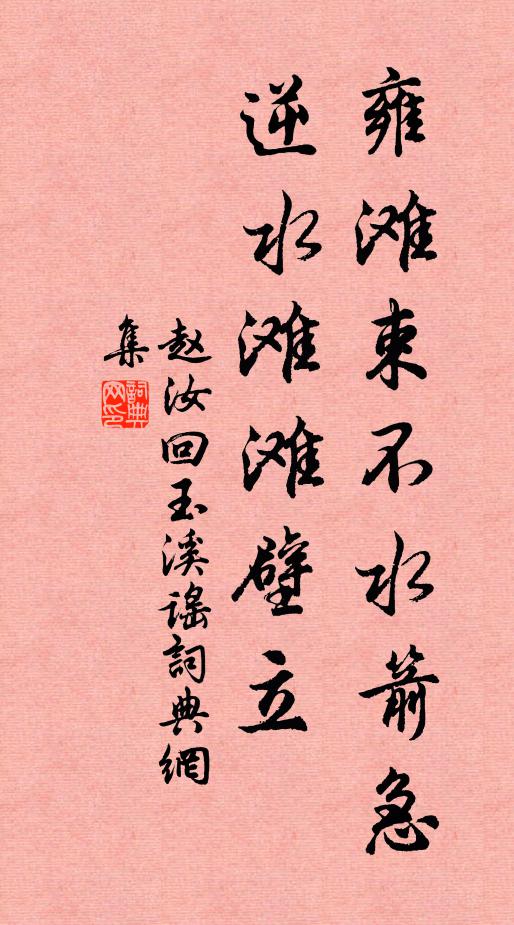 雍滩束不水箭急
逆水滩滩壁立
赵汝回玉溪谣詞典網
集
詞典
网印